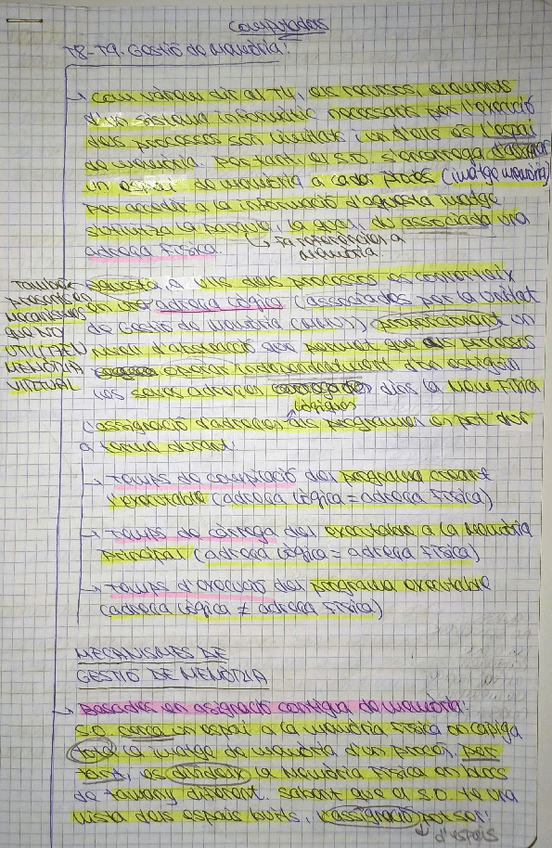 Computadors
T8-T9. Gestió de Memòria:
→ Com vèiem dir al T4, els recursos, elements
d'un sistema informàtic necessaris per l'execució
dels processos són limitats i un d'ells és l'espai
de memòria. Per tant, el S.O. s'encarrega d'assignar
un espai de memòria a cada procés (imatge memòria)
Per accedir a la informació d'aquesta imatge
s'utilitza la la qual, té associada una
↳ Fa referència a
memòria
adreça física
Aquesta, a vista dels processos es converteix
en una adreça lògica (associades per la Unitat
de Gestió de Memòria (MMU)), proporcionant un
nivell d'abstracció que permet que els processos
operar independentment d'on estiguin
les seves adreces dins la Mem. Física
lògiques
També
presents en
mecanismes
que NO
UTILITZEN
MEMÒRIA
VIRTUAL
L'assignació d'adreces dels programes es pot dur
a terme durant:
→ Temps de compilació del programa creant
l'executable (adreça lògica = adreça física)
→ Temps de càrrega del executable a la memòria
principal (adreça lògica = adreça física)
→ Temps d'execució del programa executable
(adreça lògica ≠ adreça física)
MECANISMES DE
GESTIÓ DE MEMÒRIA
→ Basades en assignació contigua de memòria:
S.O. cerca un espai a la memòria física on càpiga
tota la imatge de memòria d'un procés, per
tant, es divideix la memòria física en blocs
de tamany diferent. Sabent que el S.O. té una
llista dels espais buits, l'assignació pot ser:
↳ d'espais